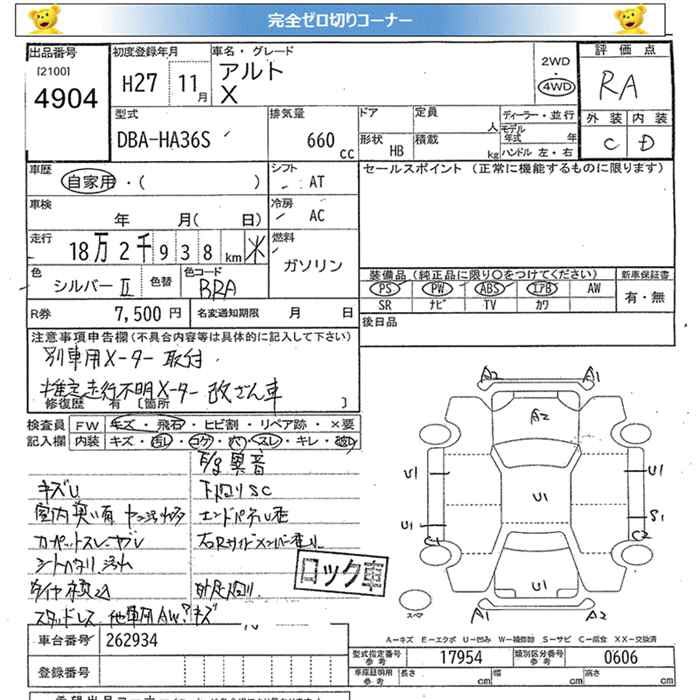 完全ゼロ切りコーナー
出品番号 初度登録年月 車名・グレード 評価点
[2100] 4904 H27 11月 アルト X 2WD 4WD RA
外装 内装
C D
型式 排気量 ドア 定員 人 ディーラー・並行
DBA-HA36S 660 cc 形状 HB 積載 kg モデル年式 年 ハンドル 左・右
車歴 シフト セールスポイント (正常に機能するものに限ります)
自家用・( ) AT
車検 年 月( 日) 冷房 AC
走行 燃料
18万2千938km ガソリン
色 シルバーⅡ 色替 色コード
装備品 (純正品に限り○をつけてください) 新車保証書
PS PW ABS エアB AW 有・無
SR ナビ TV カワ
R券 7,500円 名変通知期限 月 日 後日品
注意事項申告欄(不具合内容等は具体的に記入して下さい)
別車用メーター取付
推定走行不明メーター改ざん車
修復歴 有 [箇所 ]
検査員 FW キズ・飛石・ヒビ割・リペア跡・×要
記入欄 内装 キズ・コゲ・穴・スレ・キレ・
異音
キズU 下回りSC
室内臭い有
シート
タイヤ
スタッドレス 他車用AW キズ
ロック車
A2 A1
A2
U1 U1 U1
U1 S1
C1 C2
U1
A1 A2
スペア
A-キズ E-エクボ U-凹み W-補修跡 S-サビ C-腐食 XX-交換済
車台番号 262934 型式指定番号 参考 17954 類別区分番号 参考 0606
登録番号 車庫証明用 参考 長さ cm 幅 cm 高さ cm